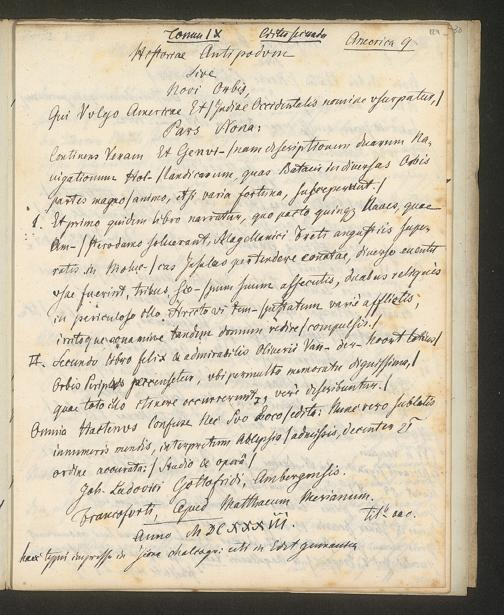 Tomus IX Editio secunda America 9
Historiae Antipodum
Sive
Novi Orbis,
Qui Vulgo Americae Et/Indiae Occidentalis nomine usurpatur,/
Pars Nona:
Continens Veram Et Genvi-/nam descriptionem duarum Na-
vigationum Hol-/landicarum, quas Batavi in diversas Orbis
partes magno/animo, etsi varia fortuna, susceperunt./
I. Et primo quidem libro narratur, quo pacto quinq; Naves, quae
Am-/sterodamo solverant, Magellanici Freti angustiis supe-
ratis in Moluc-/cas Insulas pertendere conatae, diverso eventu
usae fuerint, tribus Sco-/pum suum assecutis, duabus reliquis
in periculoso illo Freto vi tem-/pestatum varie afflictis,
irritoque conamine tandem domum redire/compulsis./
II. Secundo libro felix & admirabilis Oliverii Van-der-Noort totius/
Orbis percensetur, ubi permulta memoratu dignissima,/
quae toto illo itinere occurrerunt, vere describuntur./
Omnia Hactenus Confuse Nec Suo Loco/edita: Nunc vero sublatis
innumeris mendis, interpretum /admissis, decenter
ordine accurata:/Studio & opera/
Joh. Ludovici Gottofridi, Ambergensis.
Francofurti, Apud Matthaeum Merianum.
Anno MDCXXXIII
Tit. vac.
haec typis impressa in